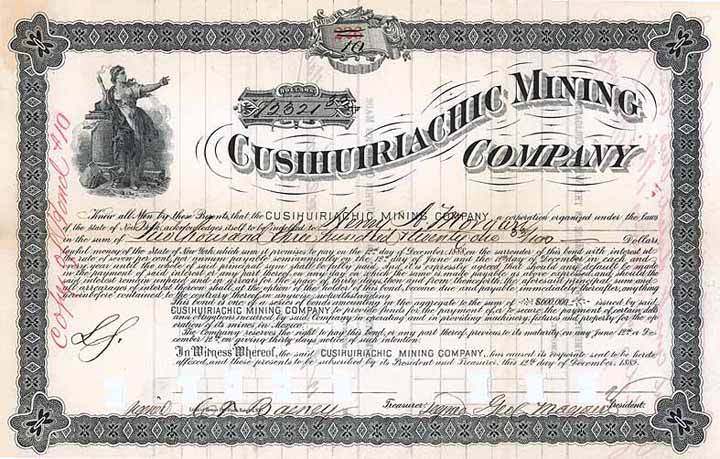 NUMBER
10
DOLLARS
12321
CUSIHUIRIACHIC MINING
COMPANY
Copy of original #10
Know all Men by these Presents, that the CUSIHUIRIACHIC MINING COMPANY, a corporation organized under the laws
of the state of New York, acknowledges itself to be indebted to Henry C. Morgan
in the sum of three hundred & twenty one /100 Dollars
lawful money of the State of New York, which sum it promises to pay on the 12th day of December, 1888, on the surrender of this bond with interest at
the rate of seven per cent. per annum payable semiannually on the 12th day of June and the 12th day of December in each and
every year until the whole of said principal sum shall be fully paid. And it is expressly agreed that should any default be made
in the payment of said interest or any part thereof, on any day on which the same is made payable, as above expressed, and should the
said interest remain unpaid and in arrears for the space of thirty days, then and from thenceforth the aforesaid principal sum and
all arrearages of interest thereon shall, at the option of the holder of this bond, become due and payable immediately thereafter, anything
hereinbefore contained to the contrary thereof, in anywise notwithstanding.
This bond is one of a series of bonds amounting in the aggregate to the sum of $600,000. issued by said,
CUSIHUIRIACHIC MINING COMPANY to provide funds for the payment of, or to secure the payment of certain debts
and obligations incurred by said Company in operating and in providing machinery, fixtures and property for the op-
eration of its mines in Mexico.
The company reserves the right to pay this bond, or any part thereof, previous to its maturity, on any June 12th or De-
cember 12th, on giving thirty days notice of such intention.
In Witness Whereof, the said CUSIHUIRIACHIC MINING COMPANY, has caused its corporate seal to be hereto
affixed, and these presents to be subscribed by its President and Treasurer, this 12th day of December, 1883.
L.S.
signed Treasurer. Signed Geo. President.